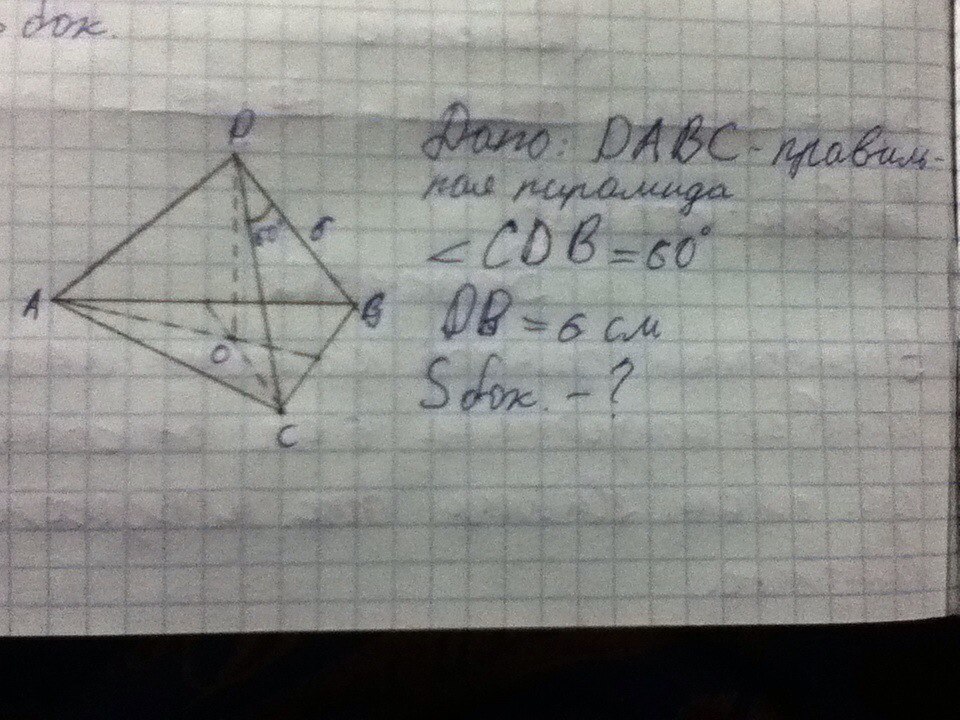 бок.
D
60°
6
A
B
O
C
Дано: DABC - правиль-
ная пирамида
∠CDB = 60°
DB = 6 см
S бок. - ?